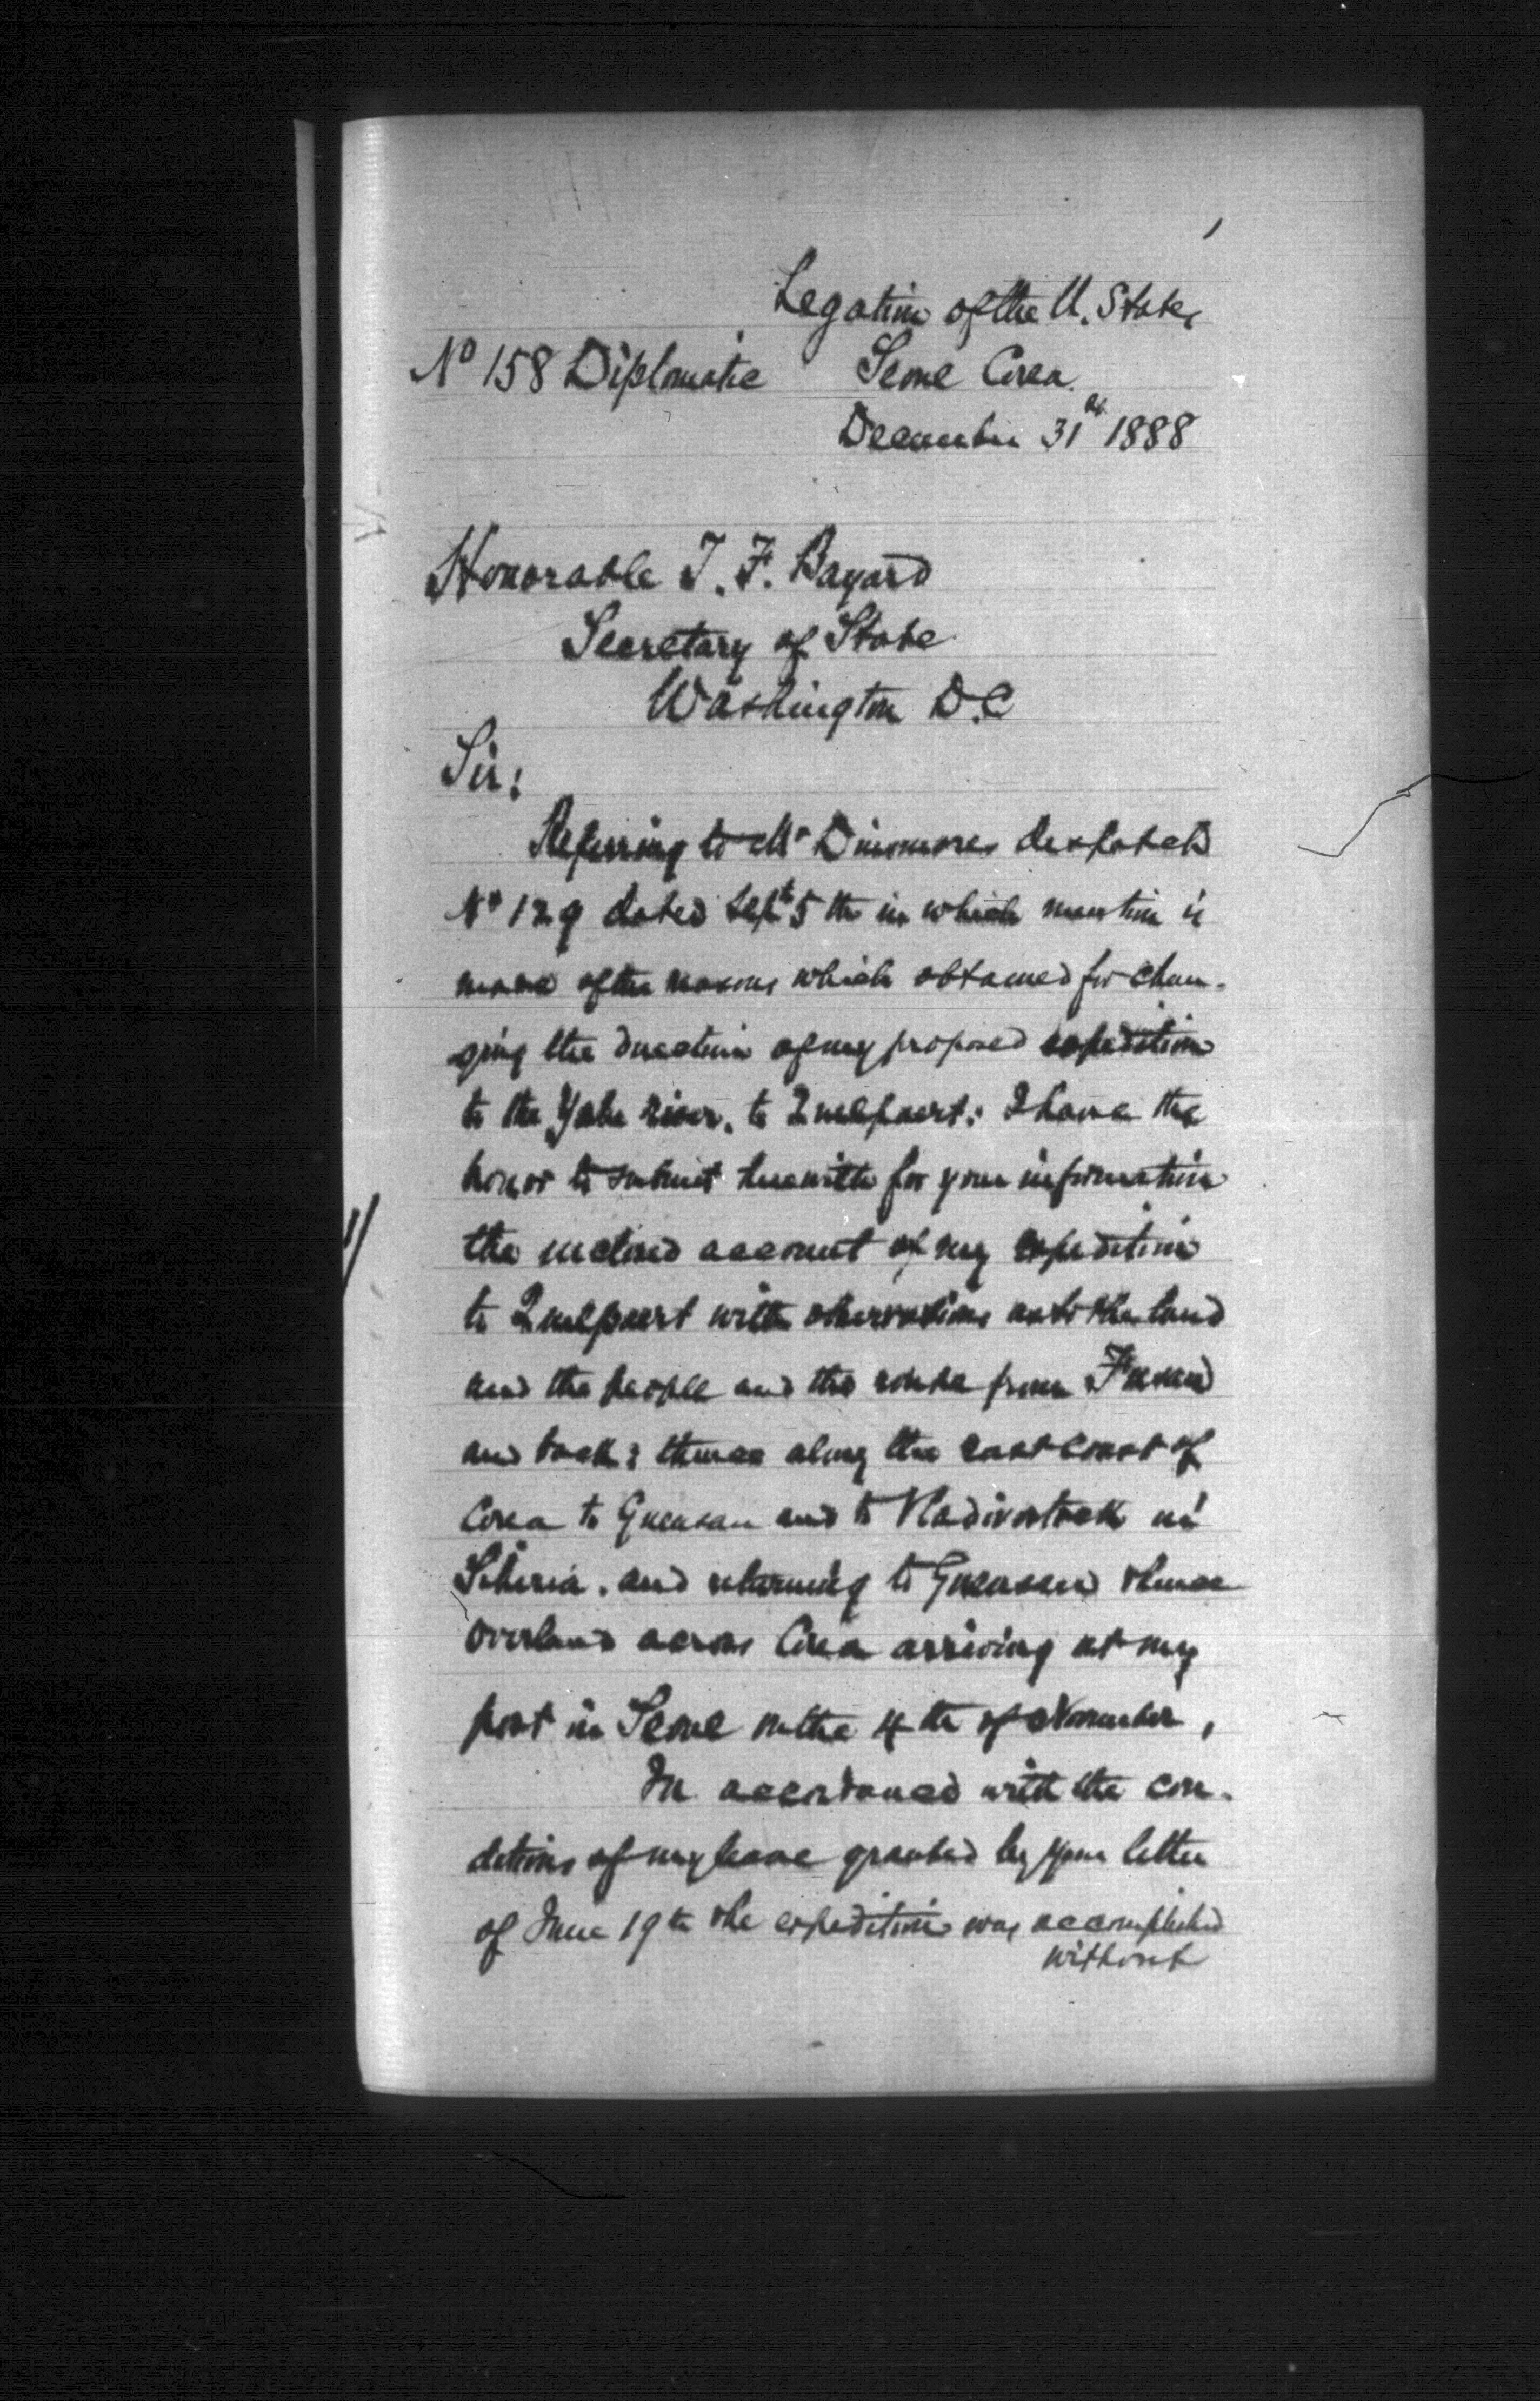 Legation of the U. States
No 158 Diplomatic Seoul Corea.
December 31st 1888
Honorable T. F. Bayard
Secretary of State
Washington D.C
Sir:
Referring to Mr Dinsmores despatch
No 129 dated Sept 5th in which mention is
made of the reasons which obtained for chan-
ging the direction of my proposed expedition
to the Yalu river, to Quelpaert: I have the
honor to submit herewith for your information
the inclosed account of my expedition
to Quelpaert with observations as to the land
and the people and the route from Fusan
and back: thence along the east coast of
Corea to Guensan and to Vladivostock in
Siberia. and returning to Guensan thence
overland across Corea arriving at my
post in Seoul on the 4th of November,
In accordance with the con-
ditions of my leave granted by your letter
of June 19th the expedition was accomplished
without